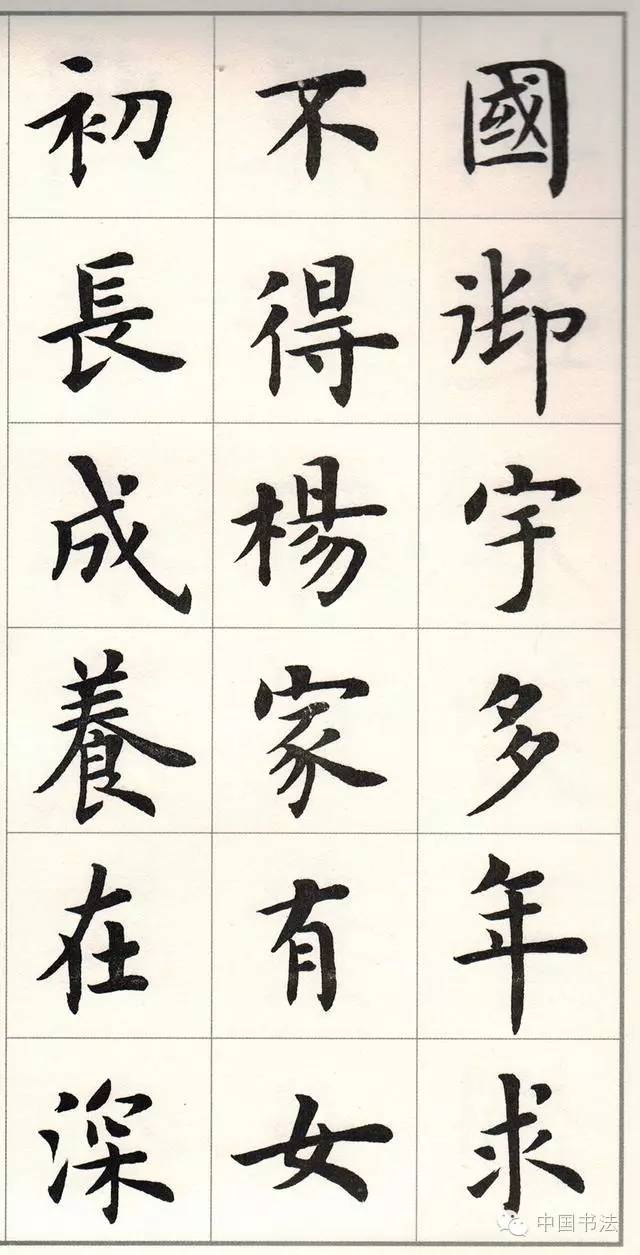 國御宇多年求
不得楊家有女
初長成養在深
中国书法